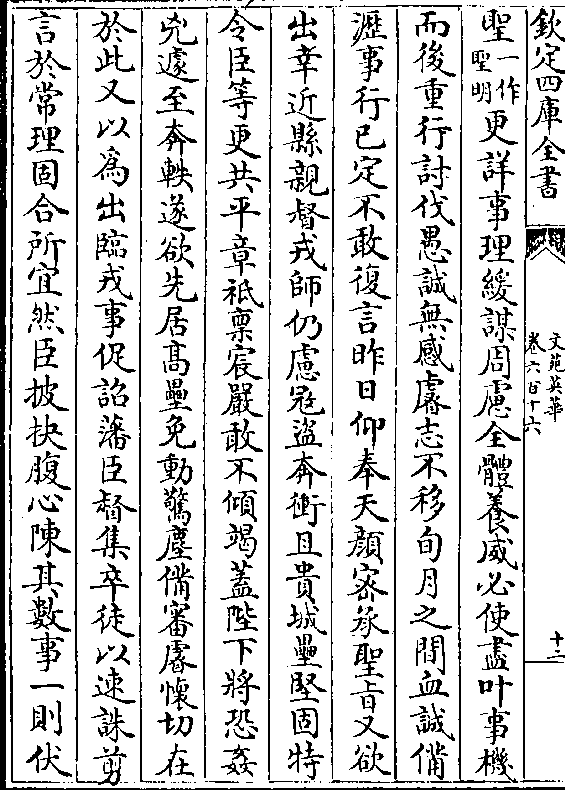 欽定四庫全書
文苑英華
卷六百十六
十二
聖一作聖明更詳事理緩謀周慮全體養威必使盡叶事機
而後重行討伐愚誠無感睿志不移旬月之間血誠備
瀝事行已定不敢復言昨日仰奉天顔密承聖旨又欲
出幸近縣親督戎師仍慮冦盜奔衝且貴城壘堅固特
令臣等更共平章祗稟宸嚴敢不傾竭蓋陛下將恐姦
兇遽至奔軼遂欲先居髙壘免動驚塵備審睿懷切在
於此又以爲出臨戎事促詔藩臣督集卒徒以速誅剪
言於常理固合所宜然臣披抉腹心陳其數事一則伏